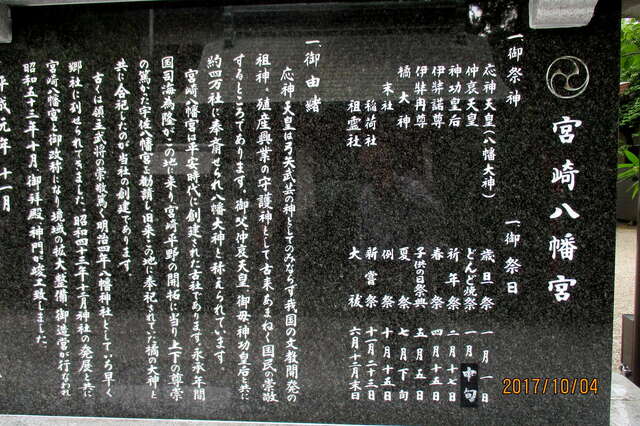 宮崎八幡宮
一、御祭神
応神天皇(八幡大神)
仲哀天皇
神功皇后
伊弉諾尊
伊弉冉尊
橘大神
末社
稲荷社
祖霊社
一、御祭日
歳旦祭 一月一日
どんど焼祭 一月中旬
祈年祭 二月十七日
春祭 四月十五日
子供の日祭典 五月五日
夏祭 七月下旬
例祭 十月十五日
新嘗祭 十一月二十三日
大祓 六月十二月末日
一、御由緒
応神天皇は弓矢武芸の神としてのみならず我国の文教開発の
祖神・殖産興業の守護神として古来あまねく国民の崇敬
するところであります。御父仲哀天皇・御母神功皇后と共に
約四万社に奉斎せられ八幡大神と称えられています。
宮崎八幡宮は平安時代に創建された古社であります。永承年間
国司海為隆がこの地に来り宮崎平野の開拓に当り上下の尊崇
の篤かった宇佐八幡宮を勧請し旧来この地に奉祀されていた橘の大神と
共に合祀したのが当社の創建であります。
古くは領主武将の崇敬篤く明治四年八幡神社としていち早く
郷社に列せられて来ました。昭和四十三年十二月神社の発展と共に
宮崎八幡宮と御改称になり境域の拡大整備、御造営が行なわれ
昭和五十三年十月御拝殿、神門が竣工致しました。
平成元年十一月
2017/10/04